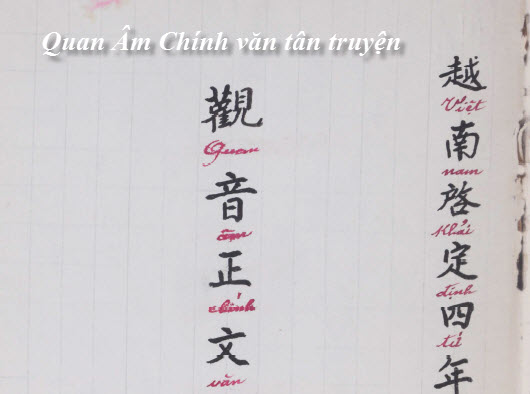 Quan Âm Chính văn tân truyện
越南啓定四年
Việt nam Khải định tứ
觀音正文
Quan âm chính văn